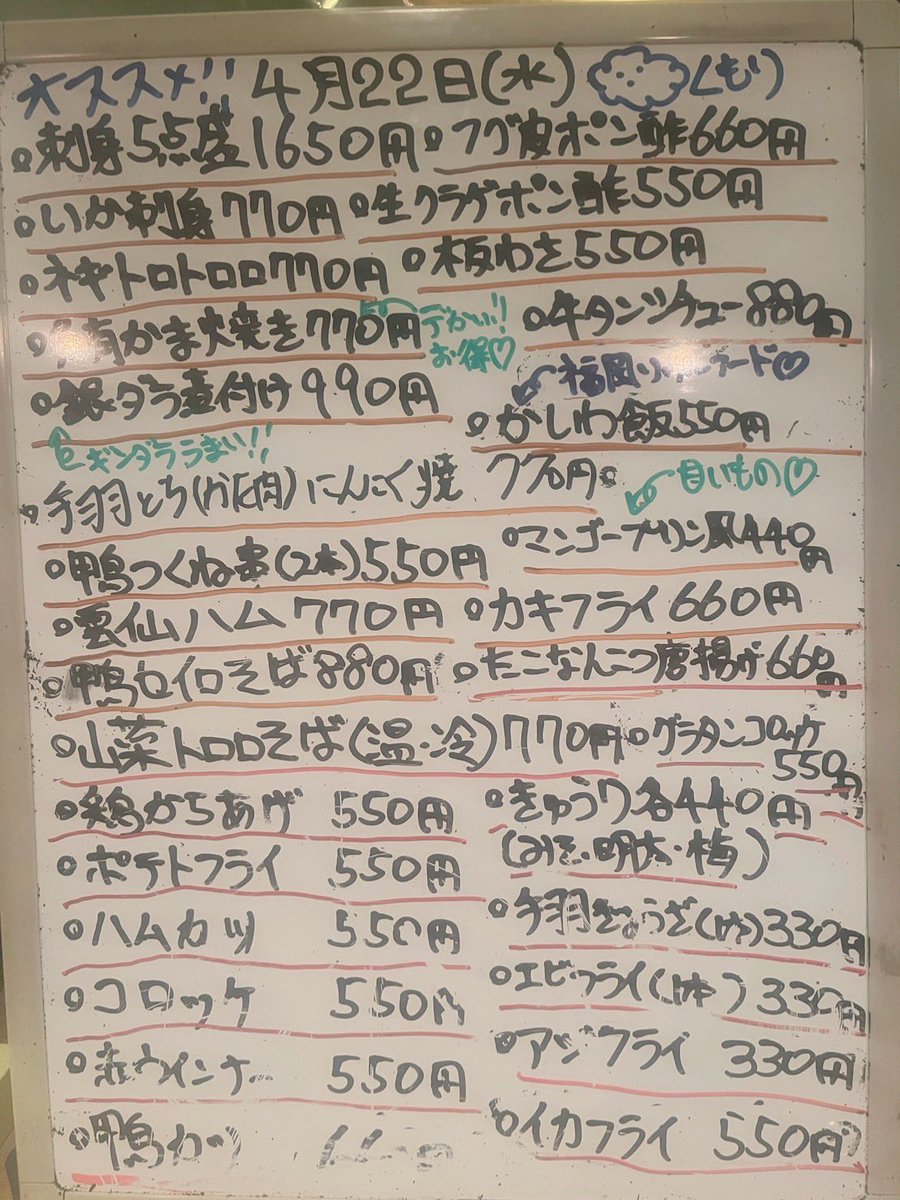 オススメ!! 4月22日(水) くもり
刺身5点盛1650円
フグ皮ポン酢660円
いか刺身770円
生クラゲポン酢550円
ネギトロトロロ770円
板わさ550円
かま焼き770円
デカい!!
お得♡
牛タンシチュー880円
銀ダラ煮付け990円
ギンダラうまい!!
福岡ソウルフード♡
かしわ飯550円
手羽とろ(かた肉)にんにく焼 770円
甘いもの♡
マンゴープリン風440円
鴨つくね串(2本)550円
雲仙ハム770円
カキフライ660円
鴨セイロそば880円
たこなんこつ唐揚げ660円
山菜トロロそば(温・冷)770円
グラタンコロッケ550円
鶏からあげ 550円
きゅうり各440円
(みそ・明太・梅)
ポテトフライ 550円
ハムカツ 550円
手羽ぎょうざ(1ケ)330円
コロッケ 550円
エビフライ(1本)330円
赤ウインナー 550円
アジフライ 330円
鴨カツ
イカフライ 550円